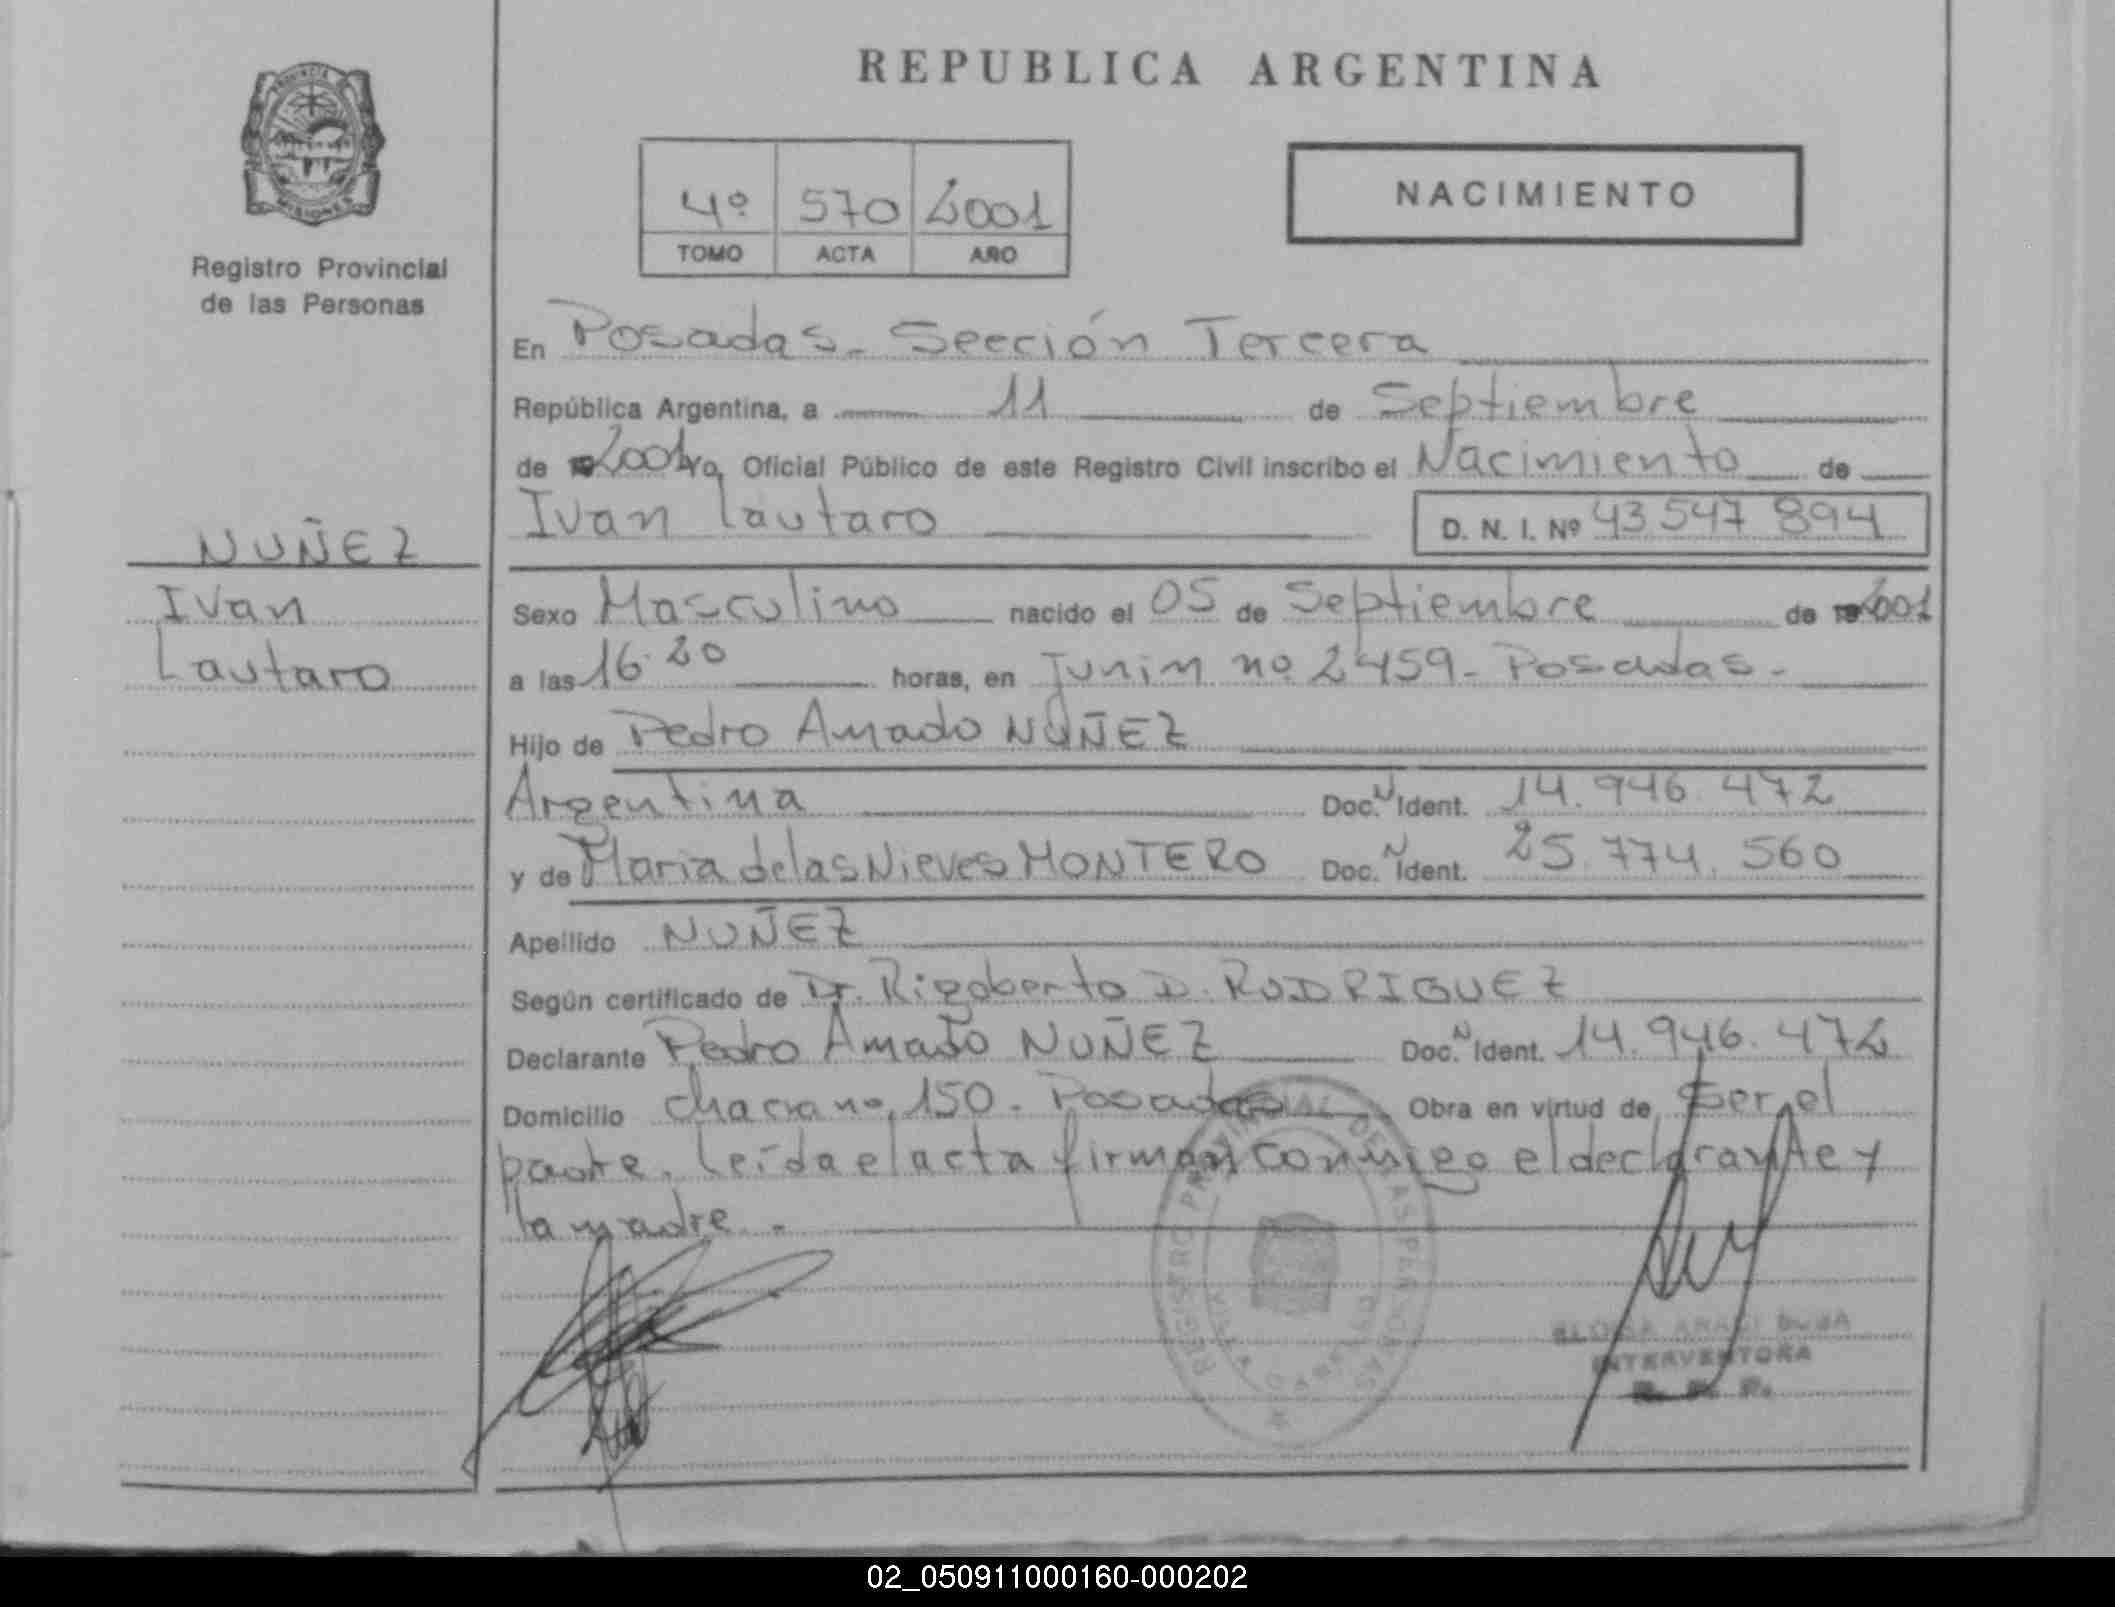 REPUBLICA ARGENTINA
PROVINCIA
MISIONES
Registro Provincial
de las Personas
4º 570 2001
TOMO ACTA AÑO
NACIMIENTO
En Posadas. Sección Tercera
República Argentina, a 11 de Septiembre
de 19 2001 Yo, Oficial Público de este Registro Civil inscribo el Nacimiento de
Ivan Lautaro D. N. I. Nº 43 547 894
NUÑEZ
Ivan
Lautaro
Sexo Masculino nacido el 05 de Septiembre de 19 2001
a las 16.20 horas, en Junin nº 2459 - Posadas -
Hijo de Pedro Amado NUÑEZ
Argentina Doc. N Ident. 14.946.472
y de Maria de las Nieves MONTERO Doc. N Ident. 25.774.560
Apellido NUÑEZ
Según certificado de Dr. Rigoberto D. RODRIGUEZ
Declarante Pedro Amado NUÑEZ Doc. N Ident. 14.946.472
Domicilio chacra nº 150 - Posadas Obra en virtud de ser el
padre. Leída el acta firman conmigo el declarante y
la madre. -
REGISTRO PROVINCIAL DE LAS PERSONAS
INTERVENTORA
R. P. P.
02_050911000160-000202